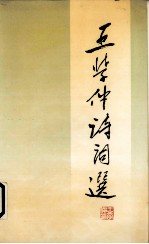 王學仲詩詞選